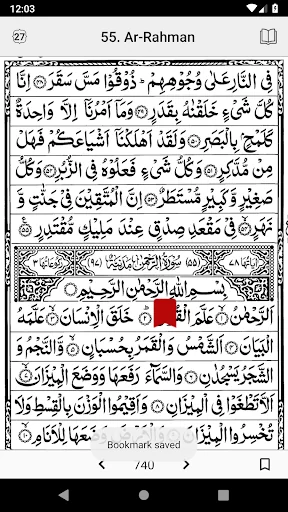 12:03
27
55. Ar-Rahman
فِى النَّارِ عَلٰى وُجُوْهِهِمْ ؕ ذُوْقُوْا مَسَّ سَقَرَ ﴿۴۸﴾ اِنَّا
كُلَّ شَىْءٍ خَلَقْنٰهُ بِقَدَرٍ ﴿۴۹﴾ وَمَاۤ اَمْرُنَاۤ اِلَّا وَاحِدَةٌ
كَلَمْحٍۭ بِالْبَصَرِ ﴿۵۰﴾ وَلَقَدْ اَهْلَكْنَاۤ اَشْيَاعَكُمْ فَهَلْ
مِنْ مُّدَّكِرٍ ﴿۵۱﴾ وَكُلُّ شَىْءٍ فَعَلُوْهُ فِى الزُّبُرِ ﴿۵۲﴾ وَكُلُّ
صَغِيْرٍ وَّكَبِيْرٍ مُّسْتَطَرٌ ﴿۵۳﴾ اِنَّ الْمُتَّقِيْنَ فِىْ جَنّٰتٍ وَّ
نَهَرٍ ﴿۵۴﴾ فِىْ مَقْعَدِ صِدْقٍ عِنْدَ مَلِيْكٍ مُّقْتَدِرٍ ﴿۵۵﴾
اٰيَاتُهَا ۷۸ (۵۵) سُوْرَةُ الرَّحْمٰنِ مَدَنِيَّةٌ (۹۷) رُكُوْعَاتُهَا ۳
بِسْمِ اللّٰهِ الرَّحْمٰنِ الرَّحِيْمِ
اَلرَّحْمٰنُ ﴿۱﴾ عَلَّمَ ﴿۲﴾ خَلَقَ الْاِنْسَانَ ﴿۳﴾ عَلَّمَهُ
الْبَيَانَ ﴿۴﴾ اَلشَّمْسُ وَالْقَمَرُ بِحُسْبَانٍ ﴿۵﴾ وَّالنَّجْمُ وَ
الشَّجَرُ يَسْجُدٰنِ ﴿۶﴾ وَالسَّمَآءَ رَفَعَهَا وَوَضَعَ الْمِيْزَانَ ﴿۷﴾
اَلَّا تَطْغَوْا فِى الْمِيْزَانِ ﴿۸﴾ وَاَقِيْمُوا الْوَزْنَ بِالْقِسْطِ وَلَا
تُخْسِرُوا الْمِيْزَانَ ﴿۹﴾ وَالْاَرْضَ وَضَعَهَا لِلْاَنَامِ ﴿۱۰﴾
Bookmark saved
740